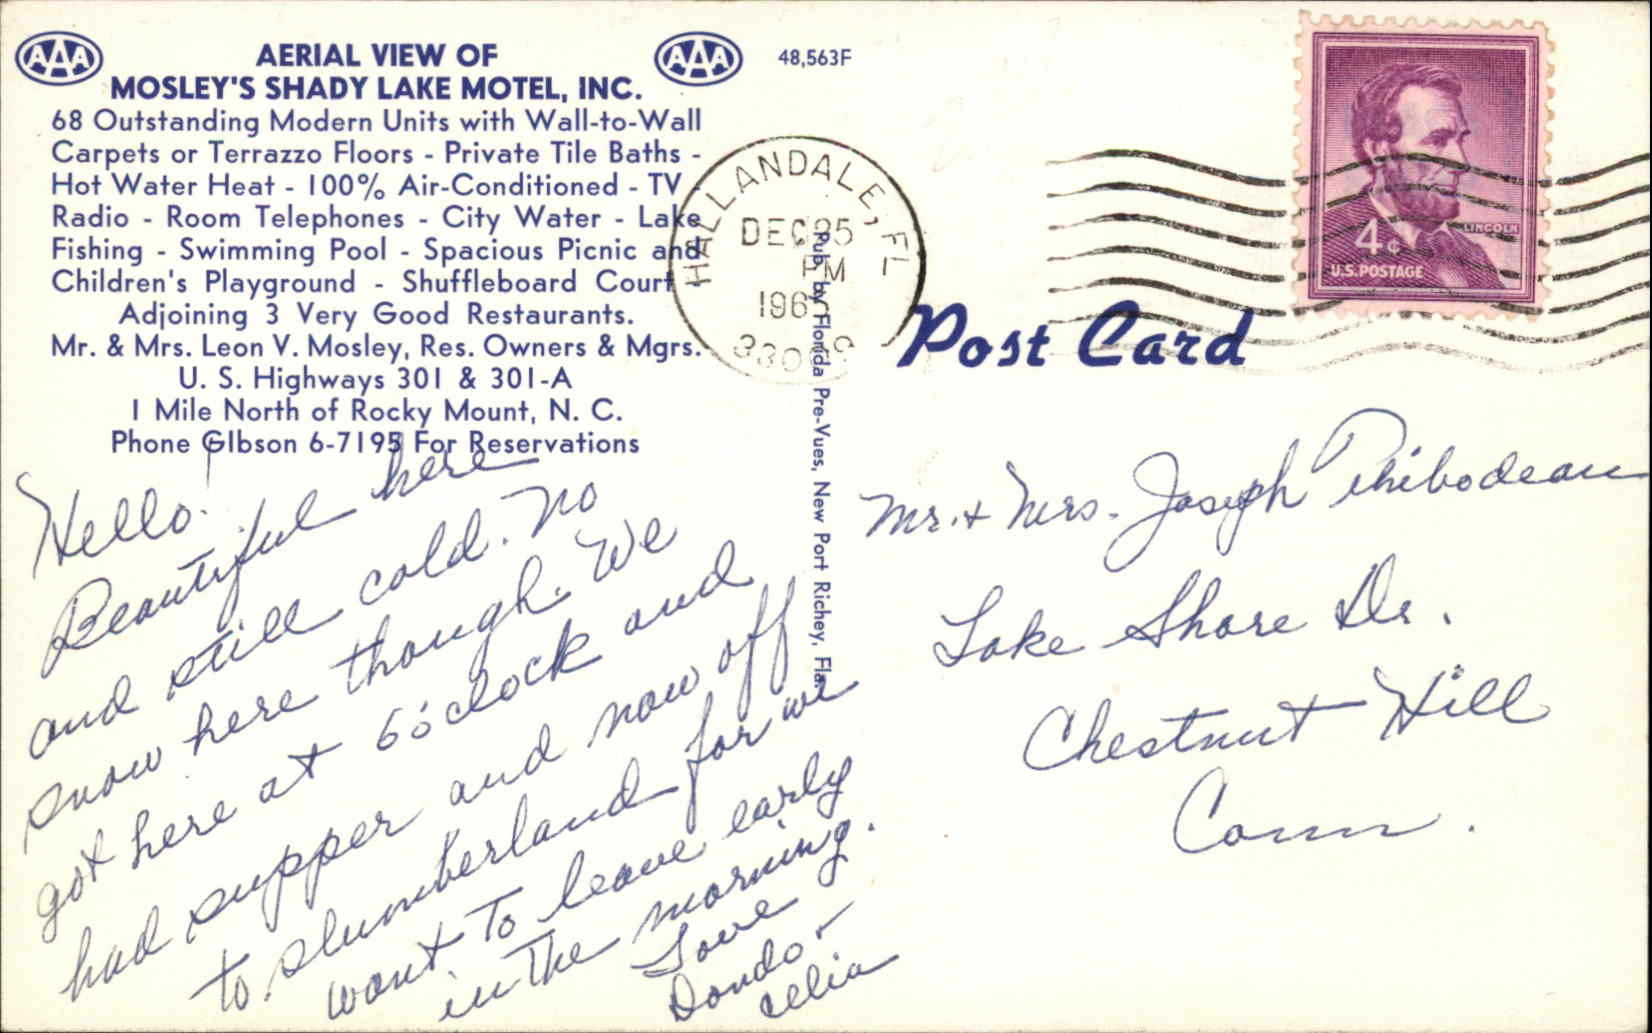 AAA
AAA
AERIAL VIEW OF
MOSLEY'S SHADY LAKE MOTEL, INC.
68 Outstanding Modern Units with Wall-to-Wall
Carpets or Terrazzo Floors - Private Tile Baths -
Hot Water Heat - 100% Air-Conditioned - TV
Radio - Room Telephones - City Water - Lake
Fishing - Swimming Pool - Spacious Picnic and
Children's Playground - Shuffleboard Court
Adjoining 3 Very Good Restaurants.
Mr. & Mrs. Leon V. Mosley, Res. Owners & Mgrs.
U. S. Highways 301 & 301-A
1 Mile North of Rocky Mount, N. C.
Phone GIbson 6-7195 For Reservations
Hello!
Beautiful here
and still cold. No
snow here though. We
got here at 6 o'clock and
had supper and now off
to slumberland for we
want to leave early
in the morning.
Love
Dondo +
Celia
48,563F
HALLANDALE, FL
DEC 25
PM
Pub. by Florida Pre-Vues, New Port Richey, Fla.
Post Card
LINCOLN
4¢
U.S. POSTAGE
Mr. + Mrs. Joseph Thibodeau
Lake Shore Dr.
Chestnut Hill
Conn.